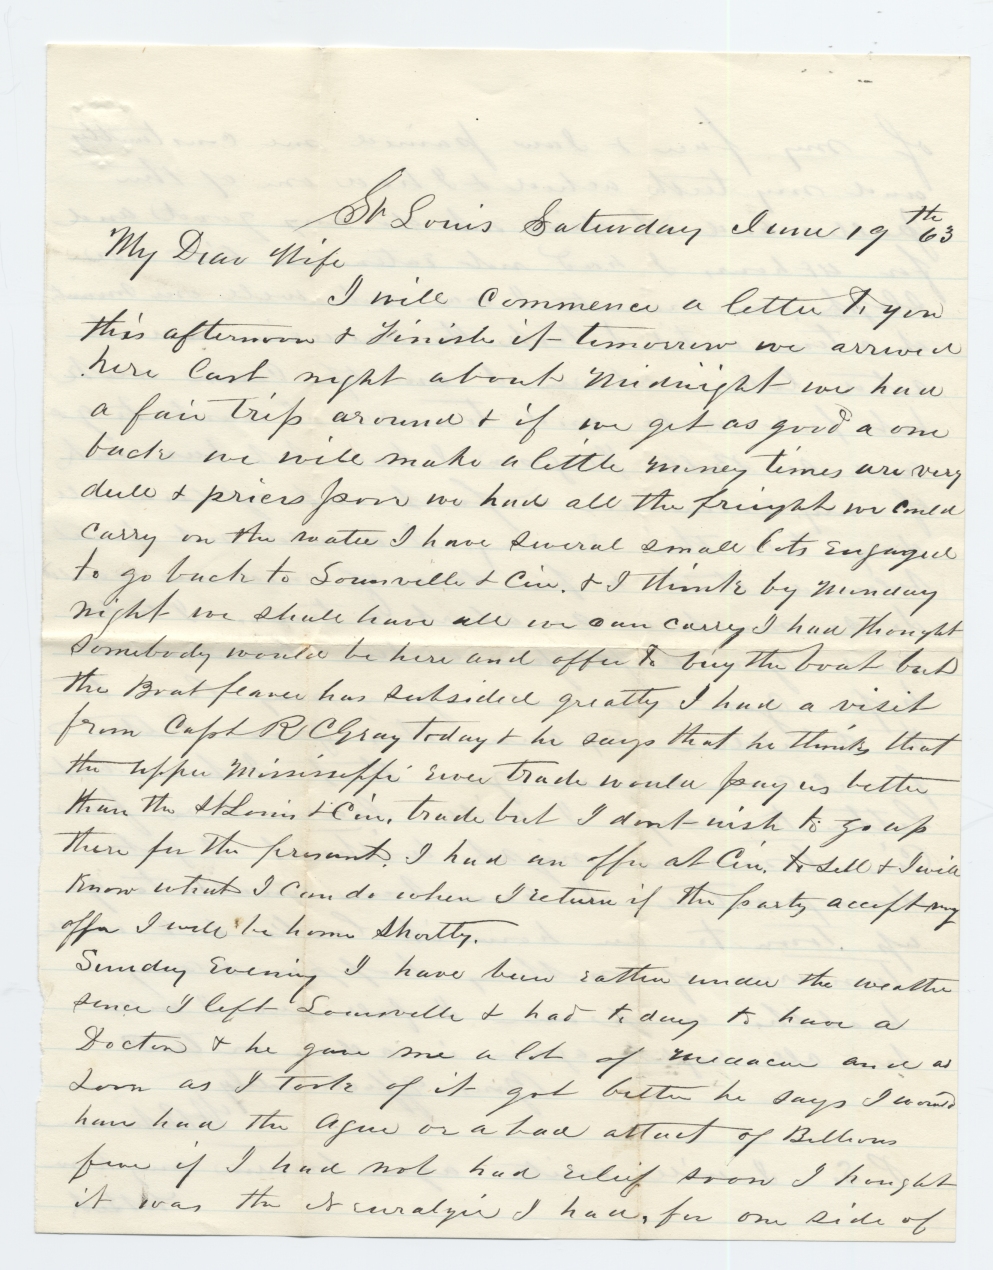 St Louis Saturday June 19th 63
My Dear Wife
I will commence a letter to you
this afternoon & Finish it tomorrow we arrived
here last night about Midnight we had
a fair trip around & if we get as good a one
back we will make a little money times are very
dull & prices poor we had all the frieght we could
carry on the water I have several small lots Engaged
to go back to Louisville & Cin. & I think by Munday
night we shall have all we can carry I had thought
somebody would be here and offer to buy the boat but
the Boat feaver has subsided greatly I had a visit
from Capt R C Gray today & he says that he thinks that
the upper Mississippi River trade would pay us better
than the St Louis & Cin. trade but I dont wish to go up
there for the presant. I had an offer at Cin. to sell & I will
know what I can do when I return if the party accept my
offer I will be home shortly.
Sunday Evening I have been rather under the weather
since I left Louisville & had to day to have a
Doctor & he gave me a lot of and as
soon as I took of it got better he says I would
have had the Ague or a bad attact of Billious
fever if I had not had relief soon I thought
it was the Neuralgie I had, for one side of